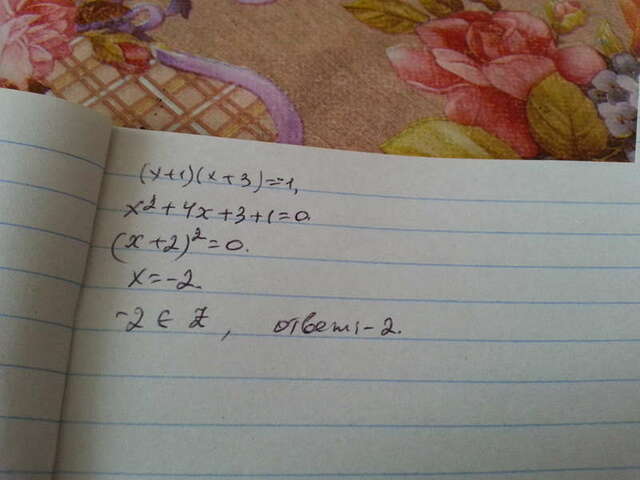 (x+1)(x+3)=-1,
x²+4x+3+1=0.
(x+2)²=0.
x=-2.
-2 ∈ Z, ответ: -2.